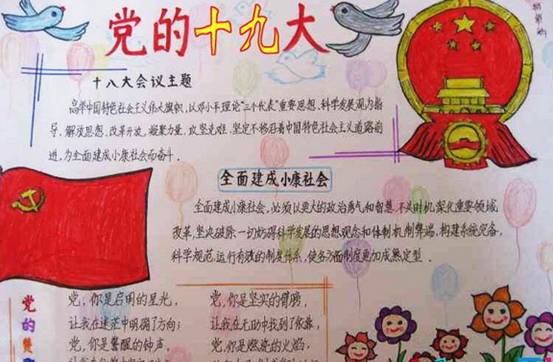 党的十九大
十八大会议主题
高举中国特色社会主义伟大旗帜，以邓小平理论"三个代表"重要思想、科学发展观为指
导，解放思想，改革开放，凝聚力量，攻坚克难，坚定不移沿着中国特色社会主义道路前
进，为全面建成小康社会而奋斗。
全面建成小康社会
全面建成小康社会，必须以更大的政治勇气和智慧，不失时机深化重要领域
改革，坚决破除一切妨碍科学发展的思想观念和体制机制弊端，构建系统完备，
科学规范，运行有效的制度体系，使各方面制度更加成熟定型。
党的
党，你是启明的星光，
让我在迷茫中明确了方向；
党，你是警醒的钟声，
党，你是坚实的臂膀，
让我在无助中找到了依靠，
党，你是燃烧的火焰，